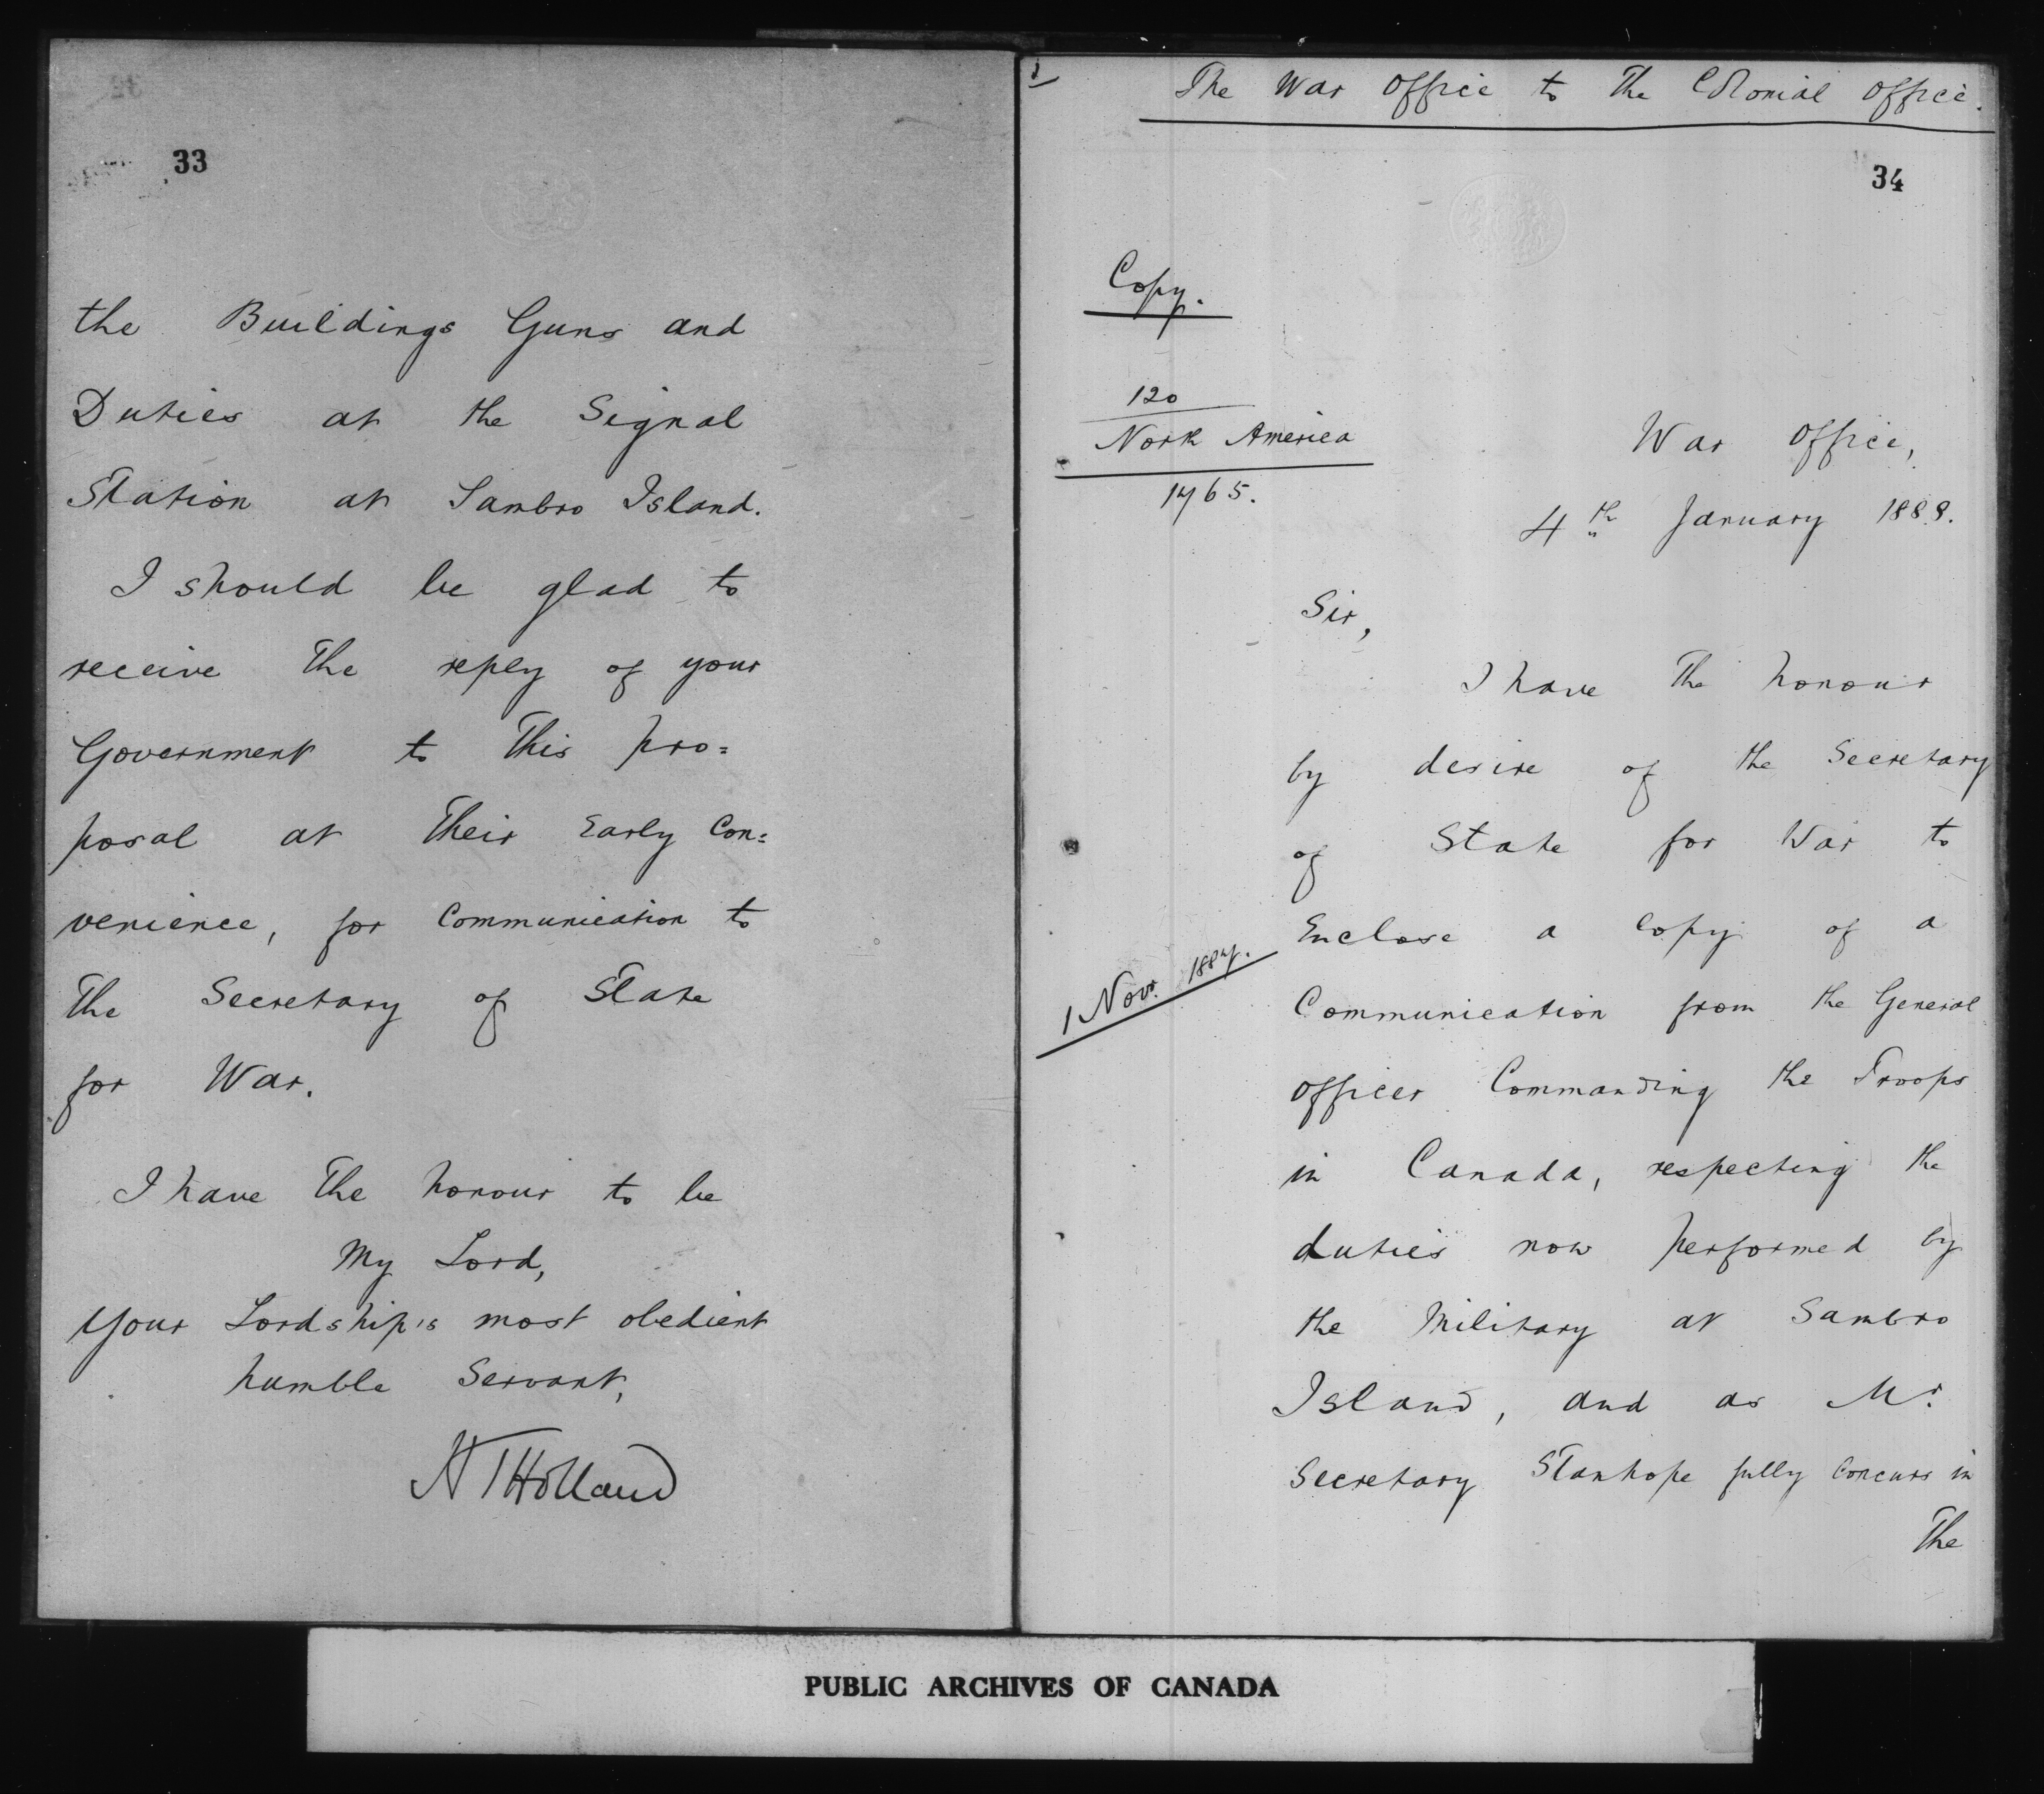 33
the Buildings Guns and
Duties at the Signal
Station at Sambro Island.
I should be glad to
receive the reply of your
Government to this pro=
posal at their early con=
venience, for communication to
the Secretary of State
for War.
I have the honour to be
My Lord,
Your Lordship's most obedient
humble Servant,
H T Holland
The War Office to the Colonial Office.
34
Copy.
120
North America
1765.
War Office,
4th January 1888.
Sir,
I have the honour
by desire of the Secretary
of State for War to
Enclose a copy of a
1 Novr. 1887.
Communication from the General
Officer Commanding the Troops
in Canada, respecting the
duties now performed by
the Military at Sambro
Island, and as Mr.
Secretary Stanhope fully concurs in
The
PUBLIC ARCHIVES OF CANADA